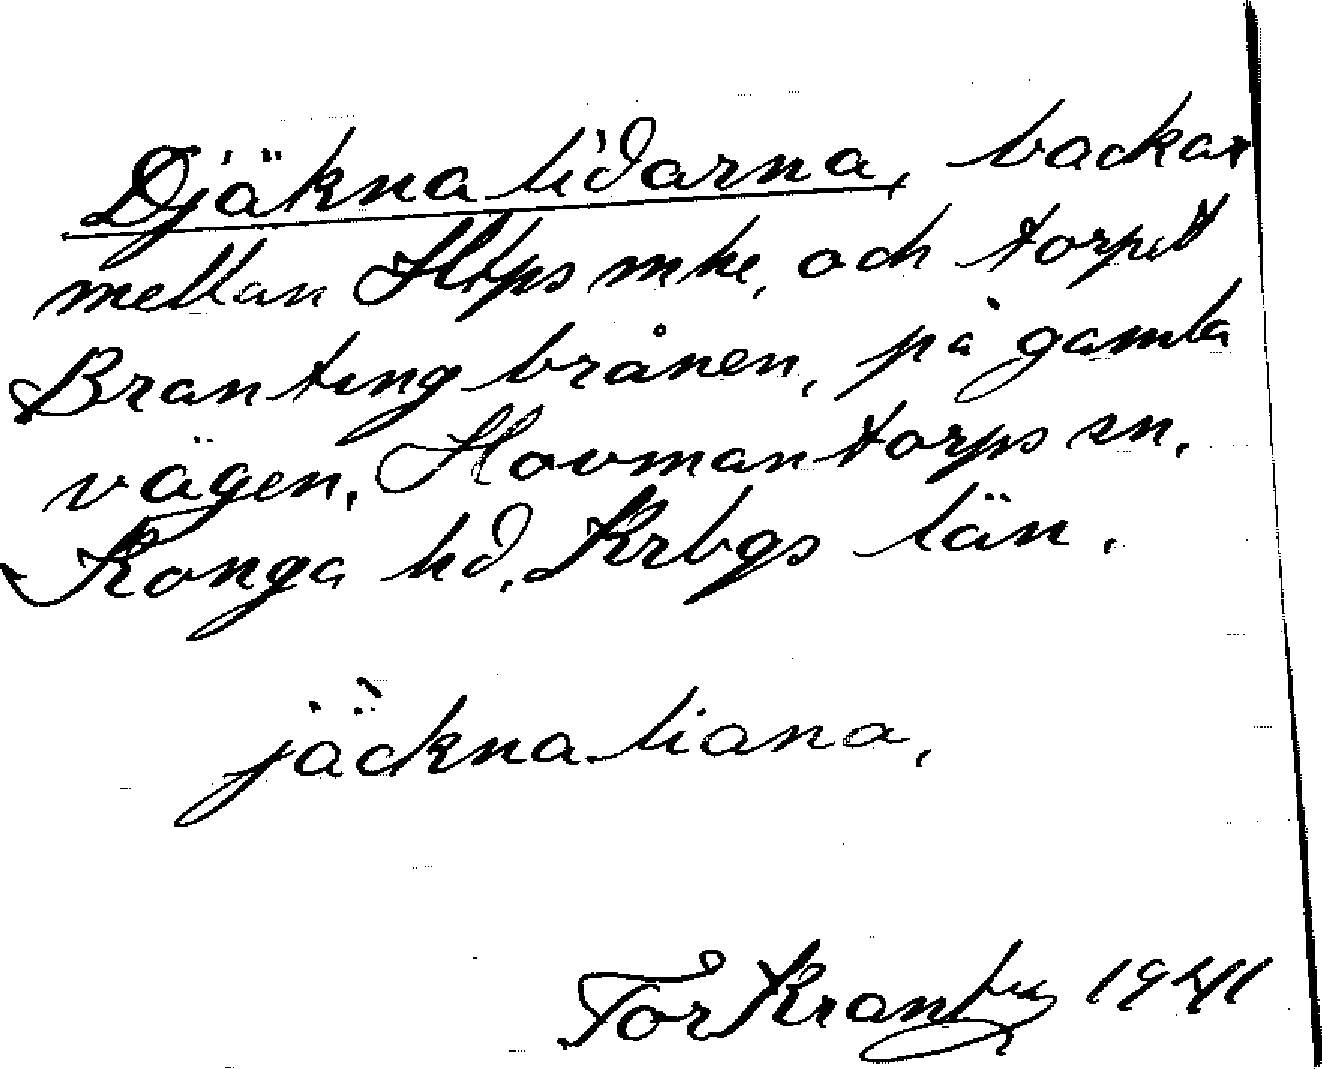 Djäknalidarna, backar
mellan Htps mke, och torpet
Brantingbrånen, på gamla
vägen, Hovmantorps sn.
Konga hd. Krbgs län.
jäcknaliana,
Tor 1941